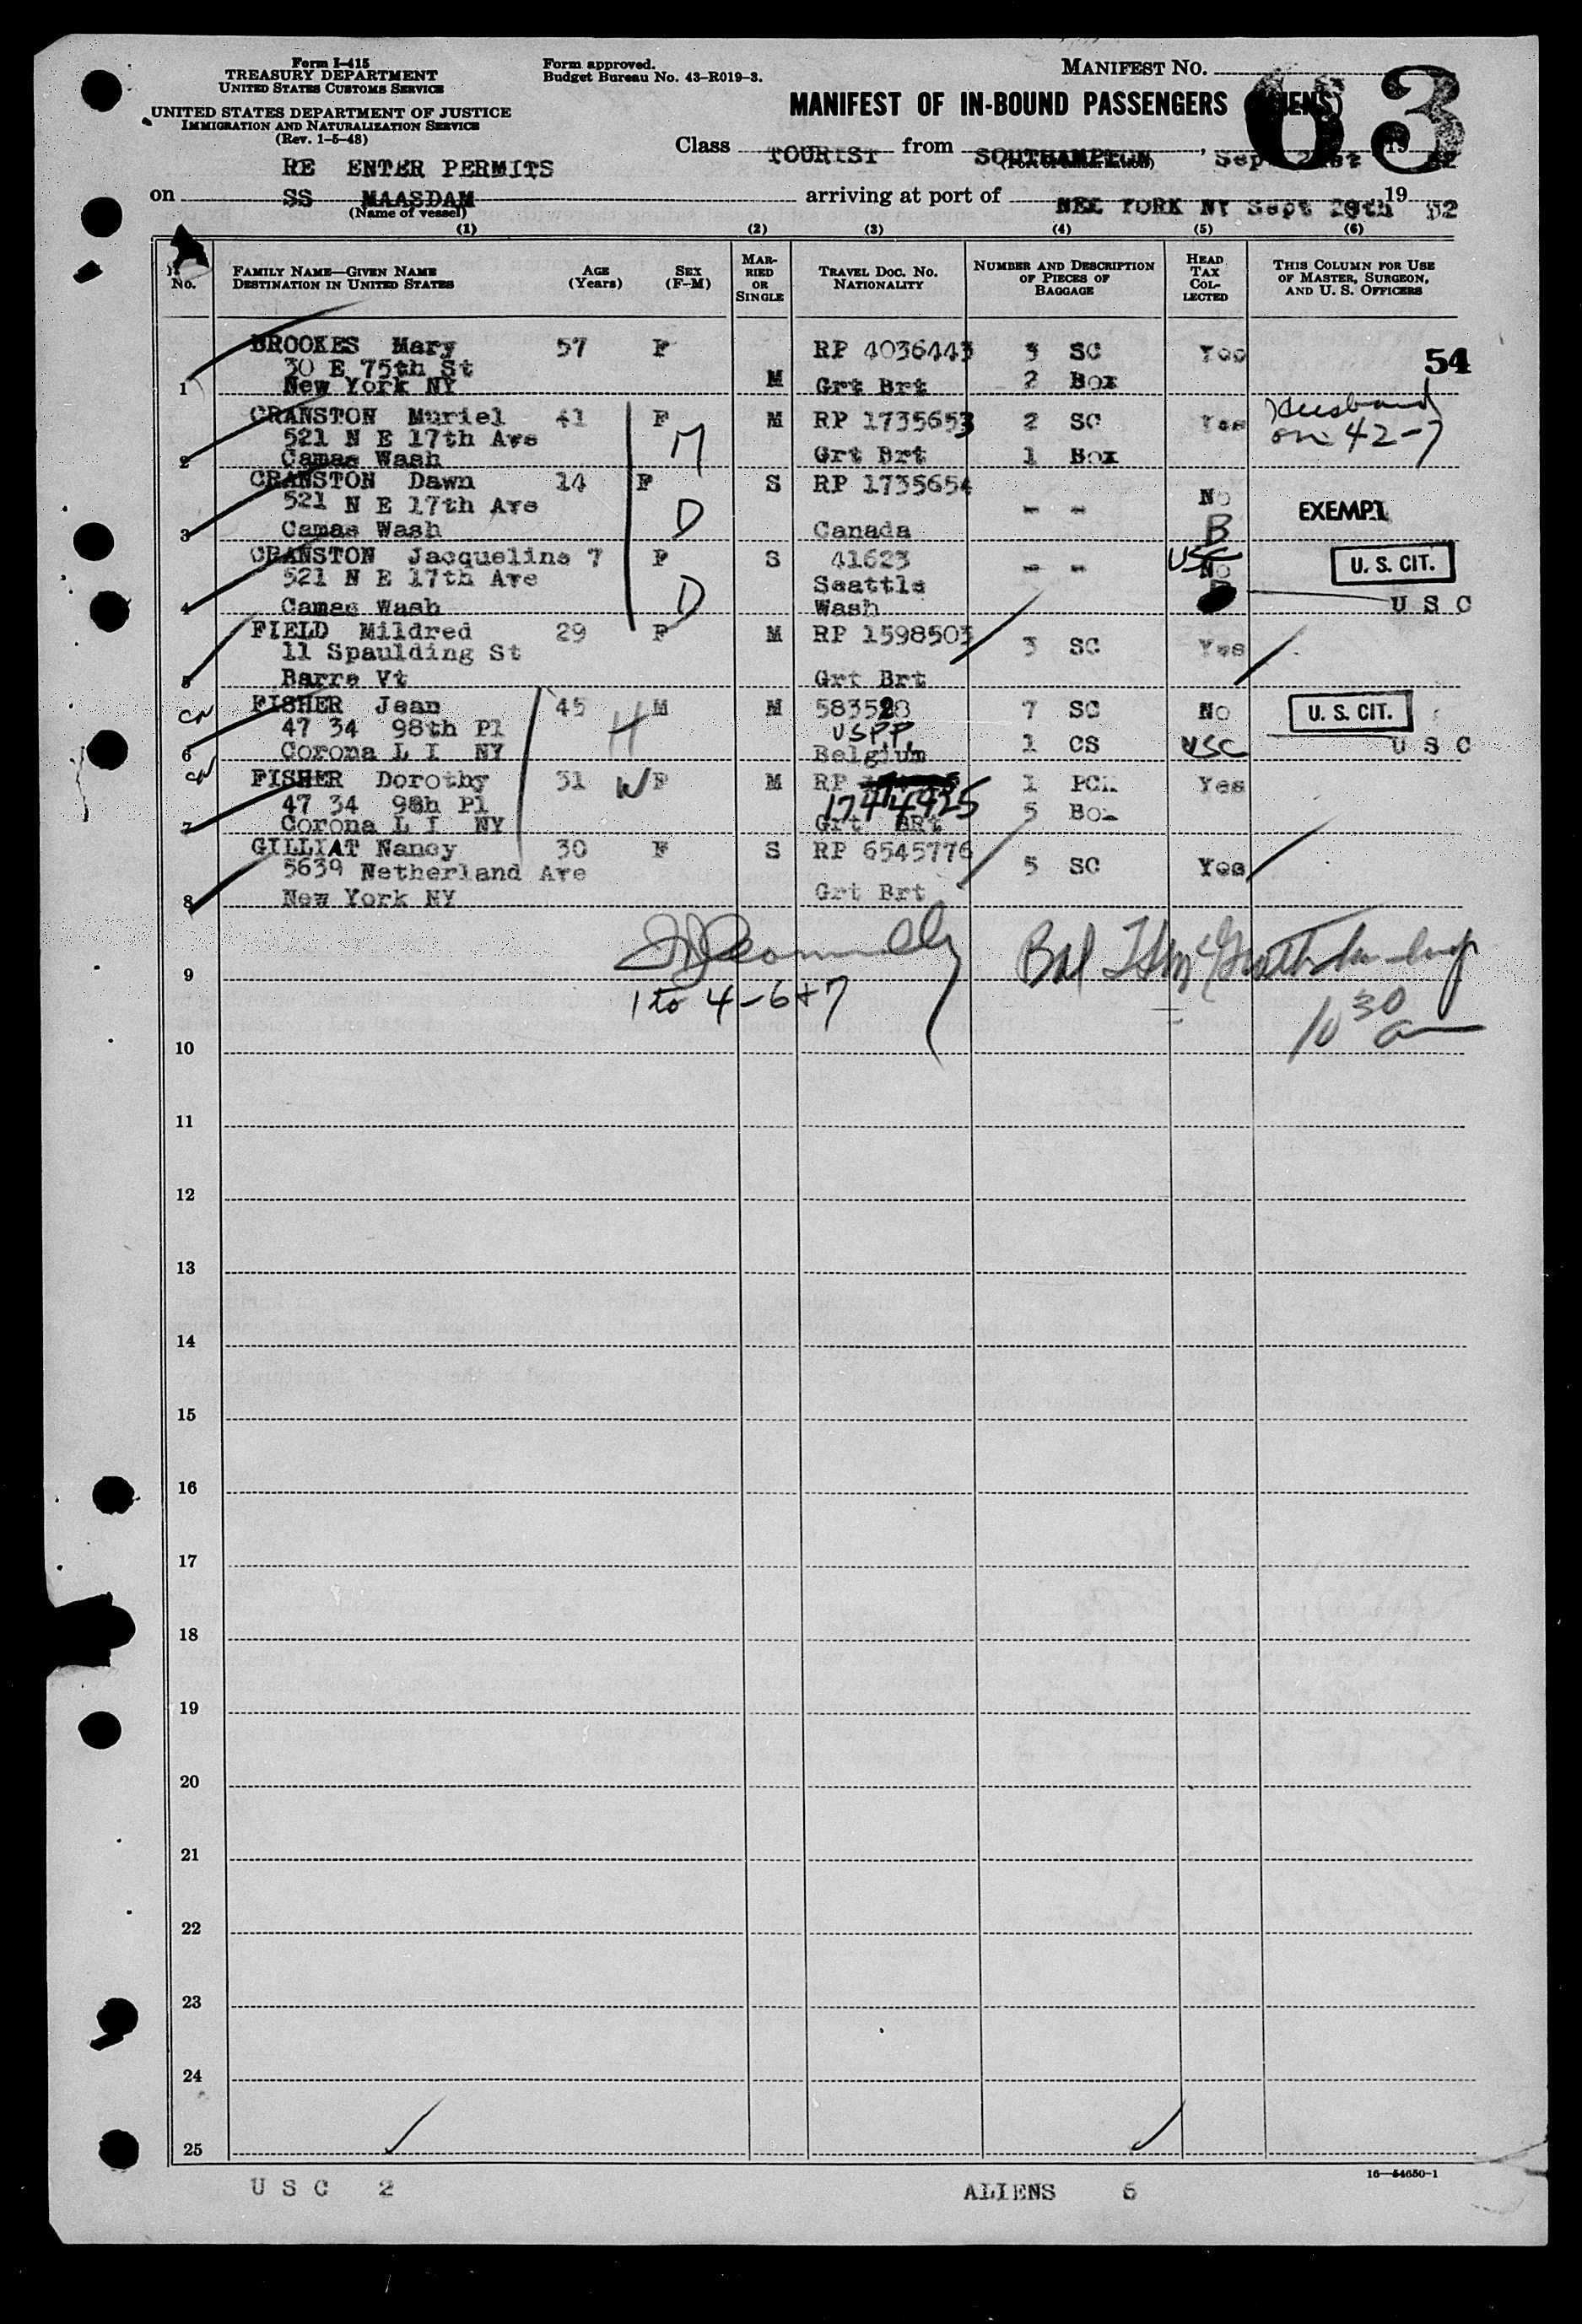 Form I-415
TREASURY DEPARTMENT
UNITED STATES CUSTOMS SERVICE
UNITED STATES DEPARTMENT OF JUSTICE
IMMIGRATION AND NATURALIZATION SERVICE
(Rev. 1-5-48)
Form approved.
Budget Bureau No. 43-R019-3.
MANIFEST NO.
63
MANIFEST OF IN-BOUND PASSENGERS
Class TOURIST from SOUTHAMPTON, Sept 19
RE ENTER PERMITS
on SS MAASDAM arriving at port of NEW YORK NY Sept 1952
(Name of vessel)
(1) (2) (3) (4) (5) (6)
No. FAMILY NAME—GIVEN NAME DESTINATION IN UNITED STATES AGE (Years) SEX (F-M) MARRIED OR SINGLE TRAVEL DOC. NO. NATIONALITY NUMBER AND DESCRIPTION OF PIECES OF BAGGAGE HEAD TAX COLLECTED THIS COLUMN FOR USE OF MASTER, SURGEON, AND U. S. OFFICERS
BROOKES Mary 57 F RP 4036443 3 SC Yes 54
30 E 75th St
1 New York NY M Grt Brt 2 Box
CRANSTON Muriel 41 F M RP 1735653 2 SC Yes Husband
521 N E 17th Ave M on 42-7
2 Camas Wash Grt Brt 1 Box
CRANSTON Dawn 14 F S RP 1735654 No
521 N E 17th Ave D - - EXEMPT
3 Camas Wash Canada B
CRANSTON Jacqueline 7 F S 41623 USC
521 N E 17th Ave Seattle - - No U. S. CIT.
4 Camas Wash D Wash U S C
FIELD Mildred 29 F M RP 1598503
11 Spaulding St 3 SC Yes
5 Barre Vt Grt Brt
CN FISHER Jean 45 H M M 583528 7 SC No U. S. CIT.
47 34 98th Pl USPP
6 Corona L I NY Belgium 1 CS USC U S C
CN FISHER Dorothy 31 W F M RP 1 PCK Yes
47 34 98h Pl 1744925 5 Box
7 Corona L I NY Grt BRt
GILLIAT Nancy 30 F S RP 6545776
5639 Netherland Ave 5 SC Yes
8 New York NY Grt Brt
9
1 to 4-6+7
10 30
10
11
12
13
14
15
16
17
18
19
20
21
22
23
24
25
16—54650-1
U S C 2 ALIENS 6